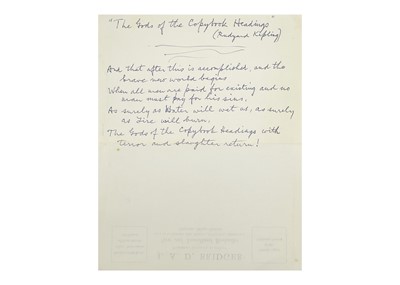 "The Gods of the Copybook Headings"
(Rudyard Kipling)
And that after this is accomplished, and the
brave new world begins
When all men are paid for existing and no
man must pay for his sins,
As surely as Water will wet us, as surely
as Fire will burn,
The Gods of the Copybook Headings with
terror and slaughter return!